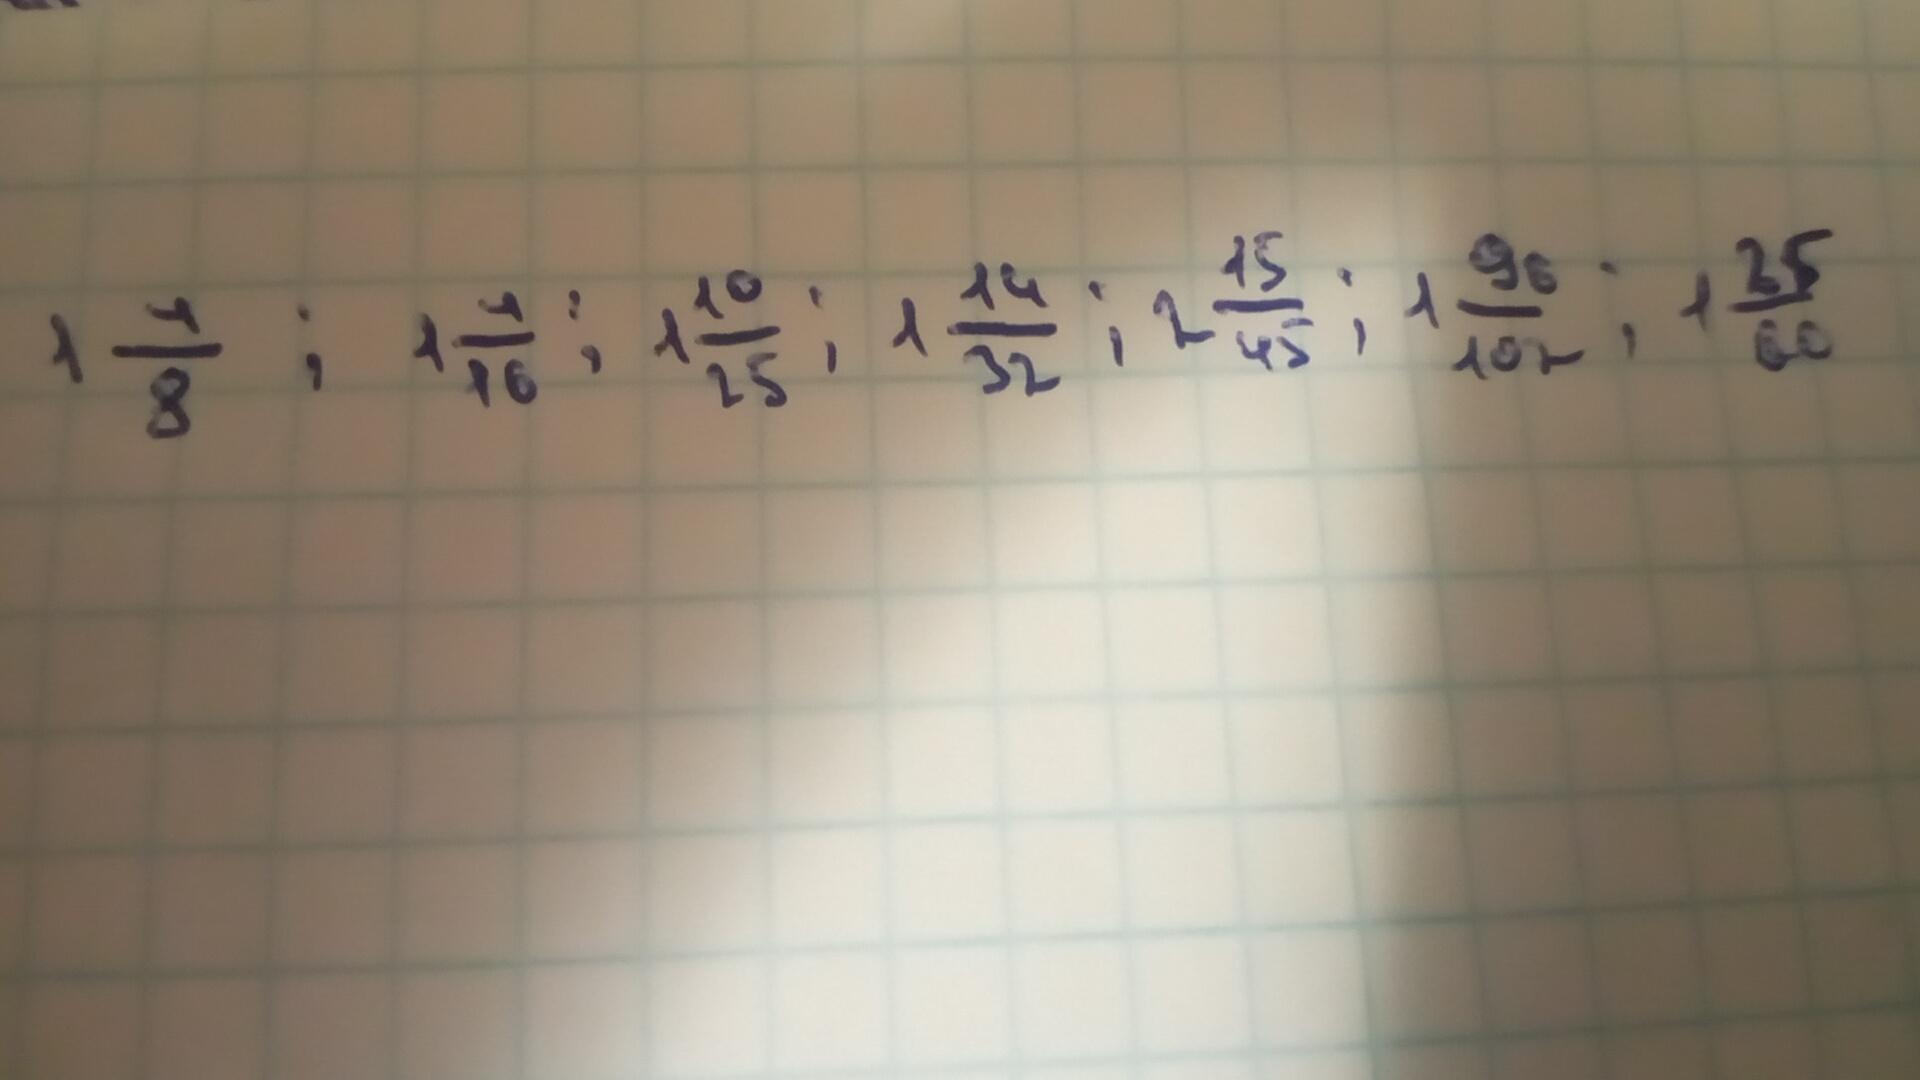 1 4/8 ; 1 4/16 ; 1 10/25 ; 1 14/32 ; 2 15/45 ; 1 96/102 ; 1 25/60